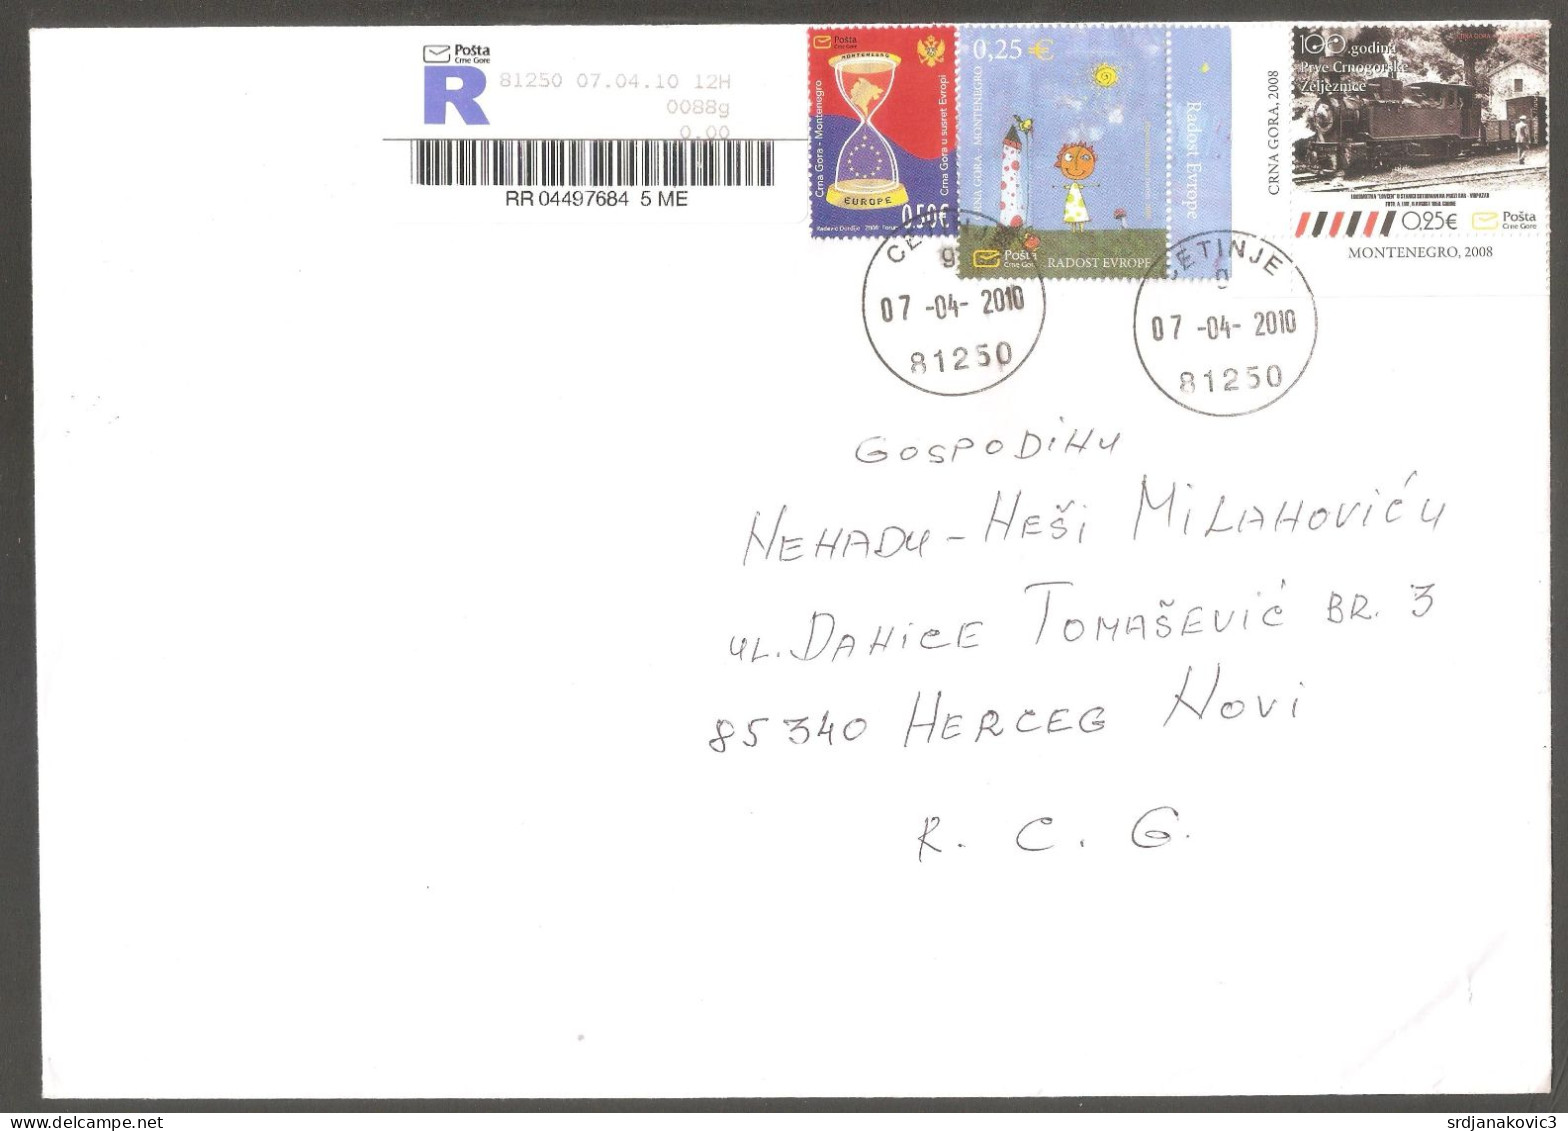 Pošta
Crne Gore
R
81250 07.04.10 12H
0088g
0.00
RR 04497684 5 ME
Pošta
Crne Gore
MONTENEGRO
EUROPE
Crna Gora - Montenegro
Crna Gora u susret Evropi
0,50€
0,25 €
CRNA GORA - MONTENEGRO
Pošta
Crne Gore
RADOST EVROPE
Radost Evrope
CRNA GORA, 2008
100 godina
Prve Crnogorske
Željeznice
0,25€
Pošta
Crne Gore
MONTENEGRO, 2008
CETINJE
9
07 -04- 2010
81250
CETINJE
9
07 -04- 2010
81250
GOSPODIHU
HEHADU - HEŠI MILAHOVIĆU
UL. DAHICE TOMAŠEVIĆ BR. 3
85340 HERCEG HOVI
R. C. G.
srdjanakovic3